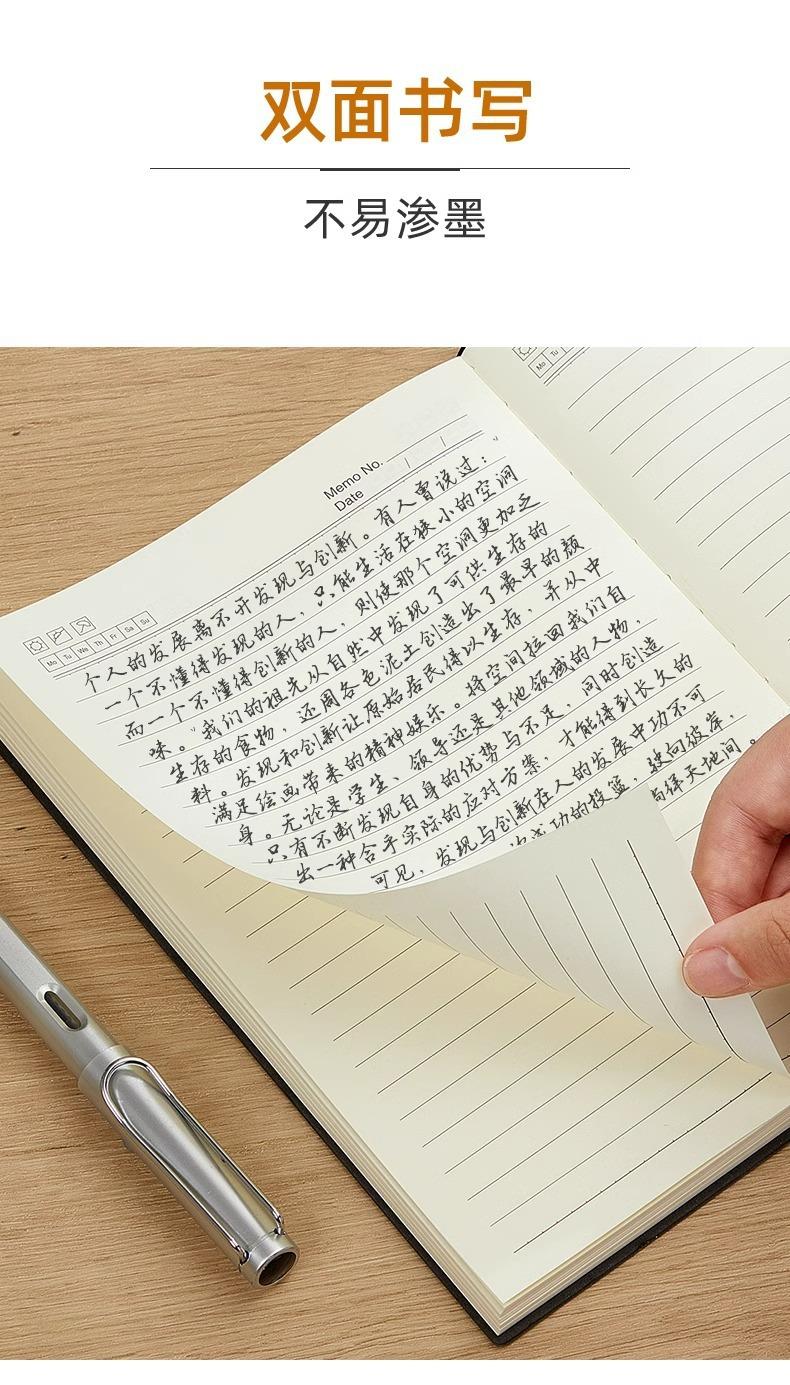 双面书写
不易渗墨
Mo Tu
Memo No.
Date / /
Mo Tu We Th Fr Sa Su
个人的发展离不开发现与创新。有人曾说过：“
一个不懂得发现的人，只能生活在狭小的空洞
而一个不懂得创新的人，则使那个空洞更加乏
味。”我们的祖先从自然中发现了可供生存的
生存的食物，还用各色泥土创造出了最早的颜
料。发现和创新让原始居民得以生存，并从中
满足绘画带来的精神娱乐。将空间拉回我们自
身。无论是学生、领导还是其他领域的人物，
只有不断发现自身的优势与不足，同时创造
出一种合乎实际的应对方案，才能得到长久的
可见，发现与创新在人的发展中功不可
成功的投篮，驶向彼岸，
徜徉天地间。